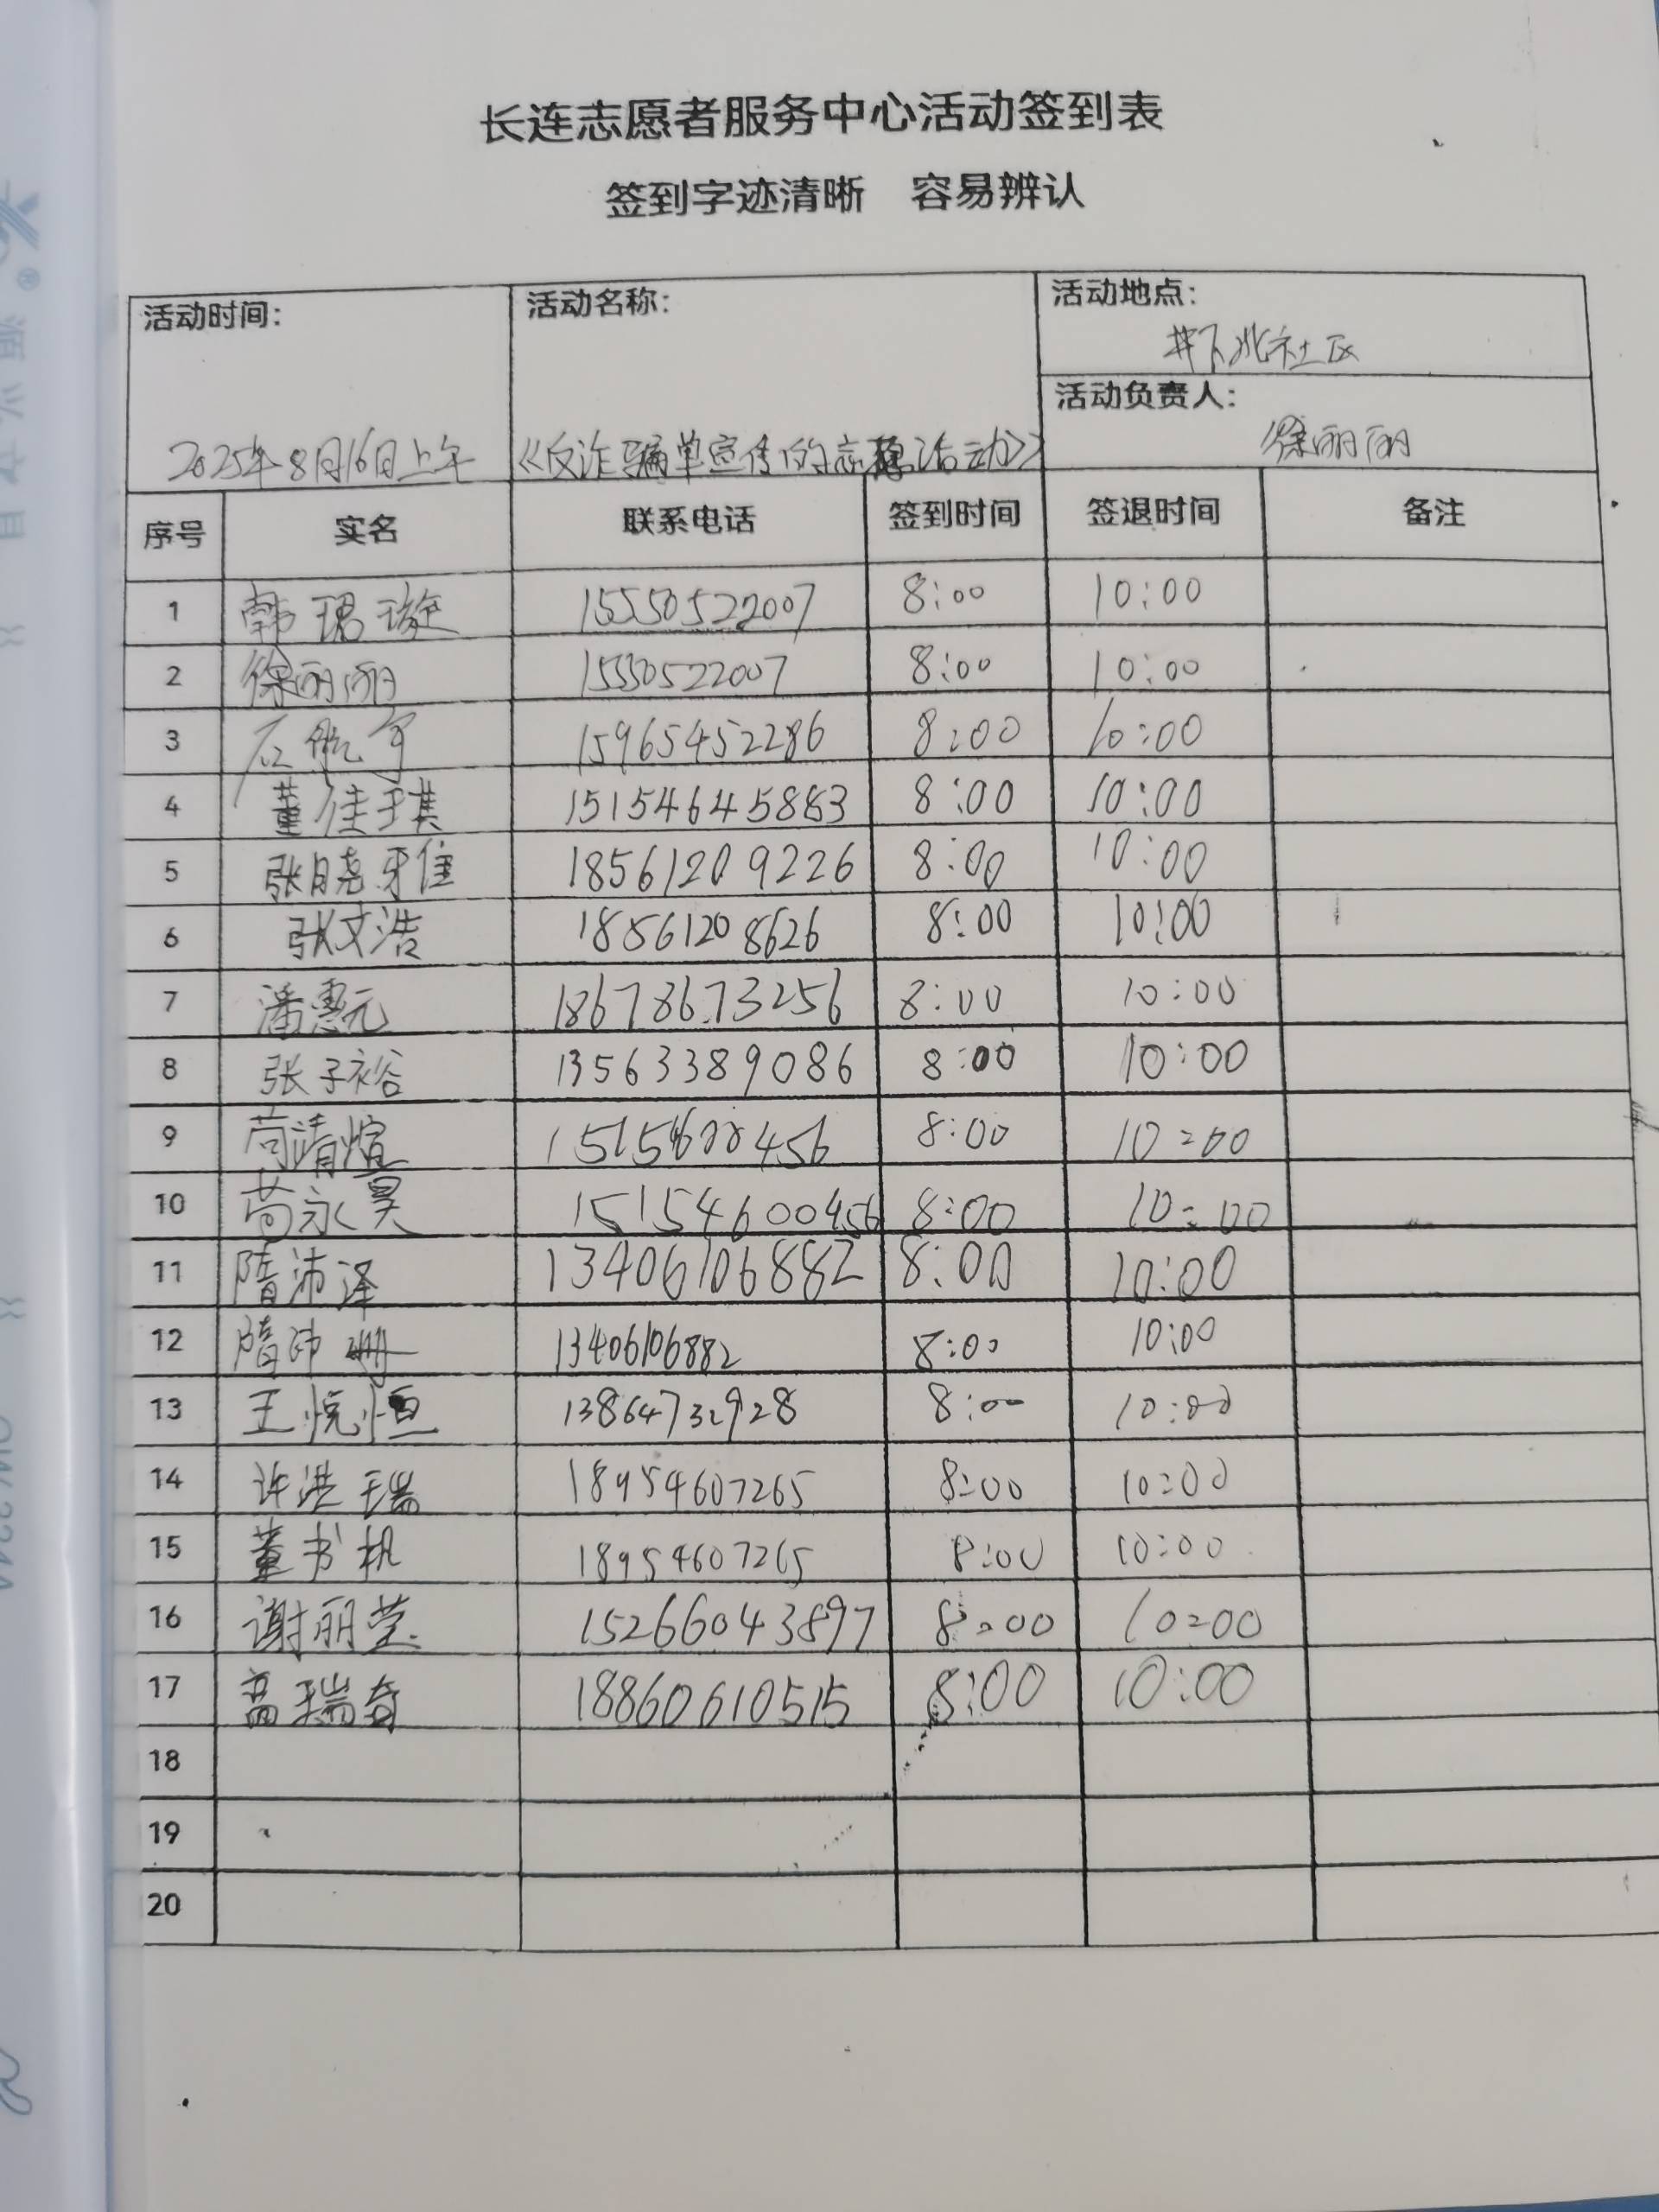 长连志愿者服务中心活动签到表
签到字迹清晰 容易辨认
活动时间: 2025年8月16日上午
活动名称: 《反诈骗单宣传的志愿活动》
活动地点: 井下北社区
活动负责人: 徐丽丽
序号 实名 联系电话 签到时间 签退时间 备注
1 韩珺璇 15550522007 8:00 10:00
2 徐丽丽 15550522007 8:00 10:00
3 石航宇 15965452286 8:00 10:00
4 董佳琪 15154645883 8:00 10:00
5 张晓雅 18561209226 8:00 10:00
6 张文浩 18561208626 8:00 10:00
7 潘惠元 18678673256 8:00 10:00
8 张子裕 13563389086 8:00 10:00
9 苟清煊 8:00 10:00
10 苟永昊 15154600456 8:00 10:00
11 隋沛泽 13406106882 8:00 10:00
12 隋沛珊 13406106882 8:00 10:00
13 王悦恒 13864732928 8:00 10:00
14 许洪瑞 18954607265 8:00 10:00
15 董书帆 18954607265 8:00 10:00
16 谢丽莹 15266043897 8:00 10:00
17 高瑞奇 18860610515 8:00 10:00
18
19
20